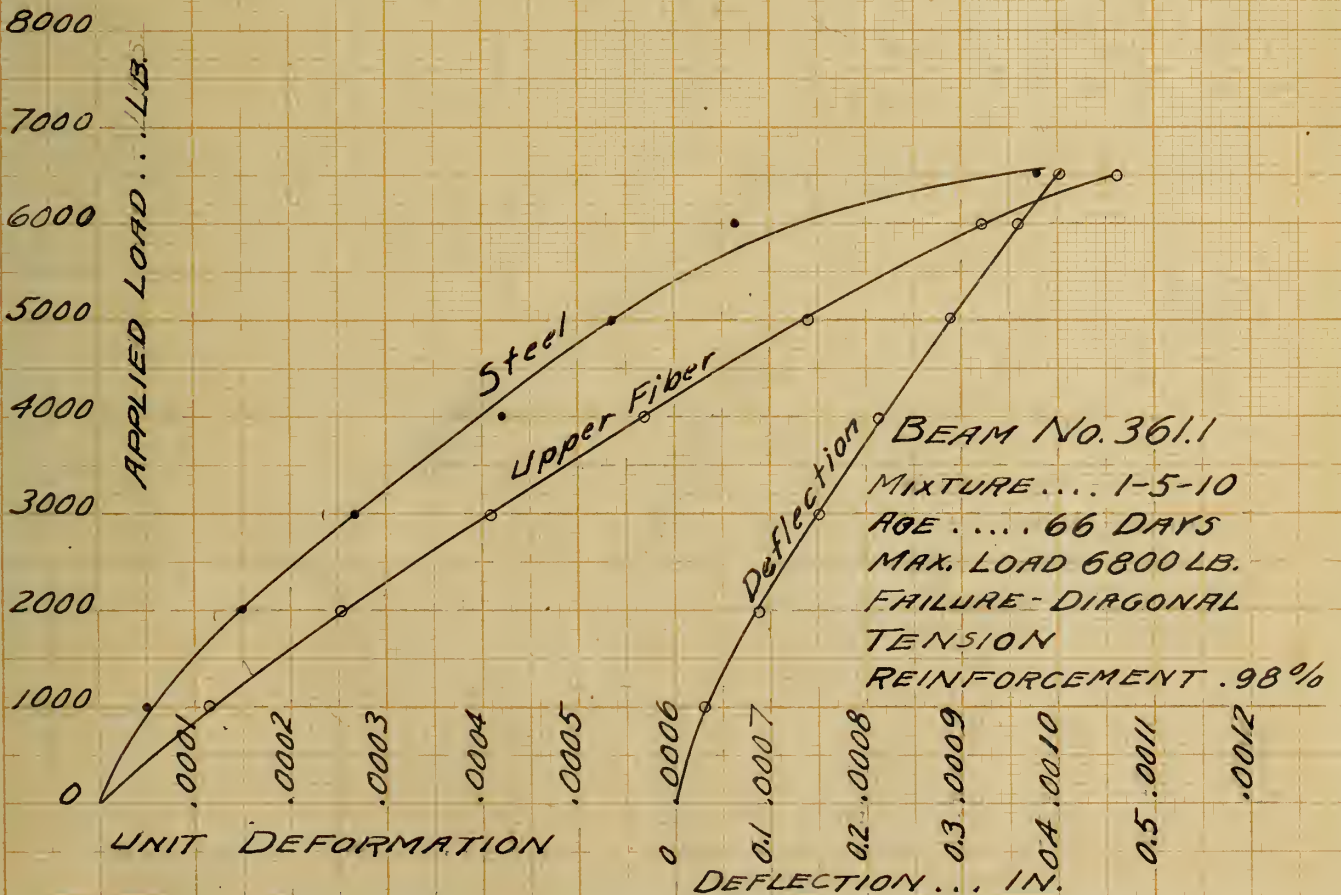 8000
7000
6000
5000
4000
3000
2000
1000
0
APPLIED LOAD... LB.
Steel
Upper Fiber
Deflection
BEAM NO. 361.1
MIXTURE .... 1-5-10
AGE ..... 66 DAYS
MAX. LOAD 6800 LB.
FAILURE - DIAGONAL
TENSION
REINFORCEMENT .98%
.0001 .0002 .0003 .0004 .0005 .0006 .0007 .0008 .0009 .0010 .0011 .0012
UNIT DEFORMATION
0 0.1 0.2 0.3 0.4 0.5
DEFLECTION ... IN.